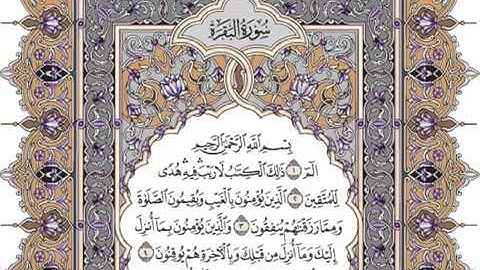 سُورَةُ البَقَرَةِ
بِسْمِ ٱللَّهِ ٱلرَّحْمَٰنِ ٱلرَّحِيمِ
الٓمٓ ١ ذَٰلِكَ ٱلْكِتَٰبُ لَا رَيْبَ ۛ فِيهِ ۛ هُدًى
لِّلْمُتَّقِينَ ٢ ٱلَّذِينَ يُؤْمِنُونَ بِٱلْغَيْبِ وَيُقِيمُونَ ٱلصَّلَوٰةَ
وَمِمَّا رَزَقْنَٰهُمْ يُنفِقُونَ ٣ وَٱلَّذِينَ يُؤْمِنُونَ بِمَآ أُنزِلَ
إِلَيْكَ وَمَآ أُنزِلَ مِن قَبْلِكَ وَبِٱلْءَاخِرَةِ هُمْ يُوقِنُونَ ٤